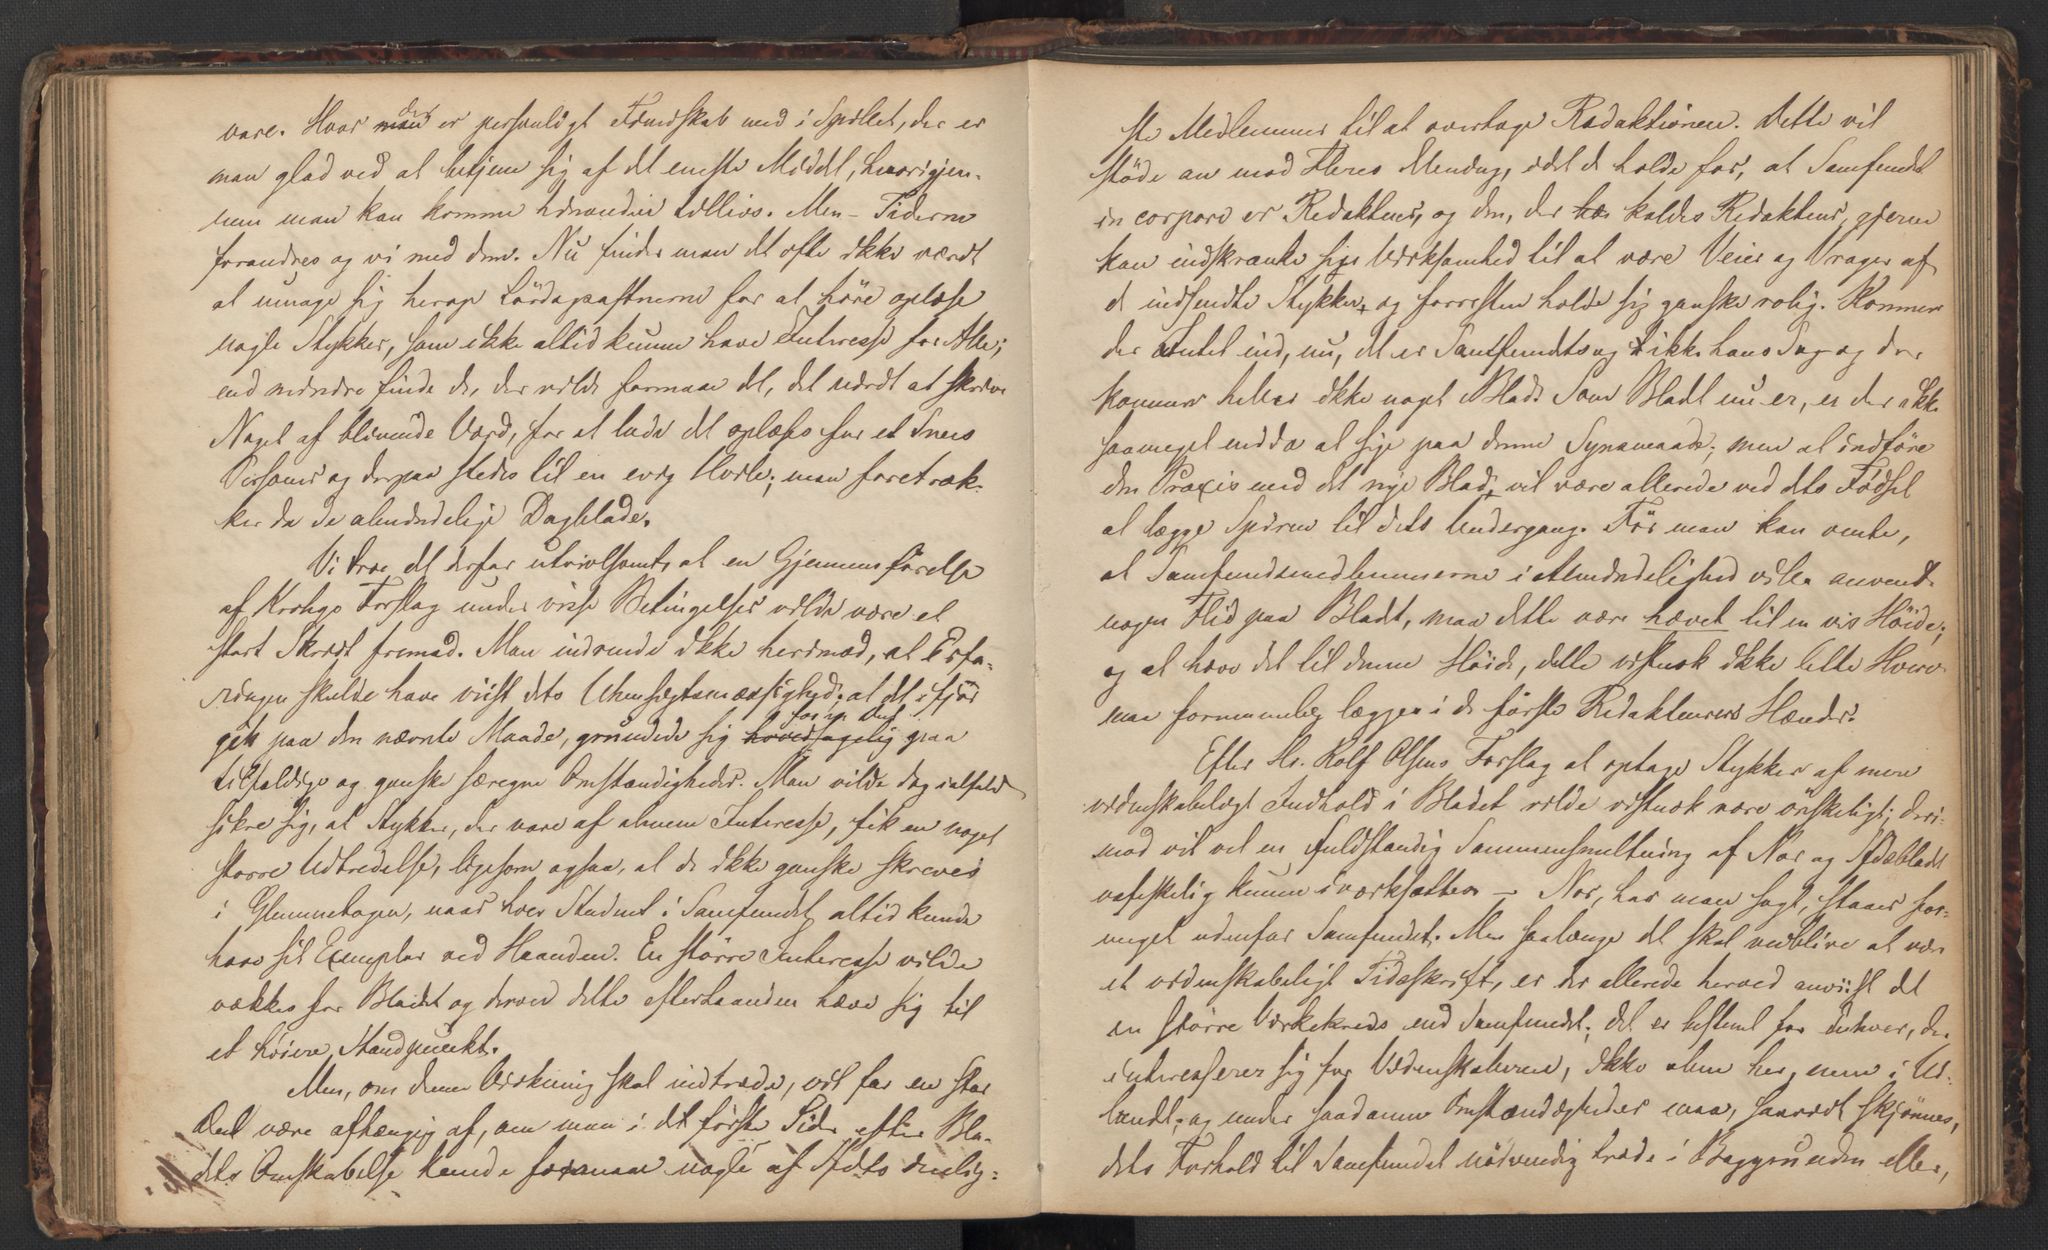 vare. Hvor der er personligt Fiendskab med i Spillet, der er
man glad ved at betjene sig af det eneste Middel, hvorigjen-
nem man kan komme hinanden tillivs. Men – Tiderne
forandres og vi med dem. Nu finder man det ofte ikke værdt
at umage sig herop Lördagsaftnerne for at höre oplæse
nogle Stykker, som ikke altid kunne have Interesse for Alle;
end mindre finde de, der vilde formaae det, det værdt at skrive
Noget af blivende Værd, for at lade det oplæses for et Snees
Personer og derpaa stedes til en evig Hvile; man foretræk-
ker da de almindelige Dagblade.
Vi troe det derfor utvivlsomt, at en Gjennemförelse
af Krohgs Forslag under visse Betingelser vilde være et
stort Skridt fremad. Man indvende ikke herimod, at Erfa-
ringen skulde have viist dets Uhensigtsmæssighed; at det ifjor
gik paa den nævnte Maade, grundede sig for en Deel paa
tilfældige og ganske særegne Omstændigheder. Man vilde dog ialfald
sikre sig, at Stykker, der vare af almen Interesse, fik en noget
större Udbredelse, ligesom ogsaa, at de ikke ganske skreves
i Glemmebogen, naar hver Student i Samfundet altid kunde
have sit Exemplar ved Haanden. En större Interesse vilde
vækkes for Bladet og derved dette efterhaanden hæve sig til
et höiere Standpunkt.
Men, om denne Virkning skal indtræde, vil for en stor
Deel være afhængig af, om man i det förste Tider efter Bla-
dets Omskabelse kunde formaae nogle af Sfdts dulig-
ste Medlemmer til at overtage Redaktionen. Dette vil
støde an mod Fleres Mening, idet de holde for, at Samfundet
in corpore er Redakteur, og den, der kaldes Redakteur, gjerne
kan indskrænke sin Virksomhed til at være Veier og Vrager af
de indsendte Stykker og forresten holde sig ganske rolig. Kommer
der Intet ind, nu, det er Samfundets og ikke hans Sag og der
kommer heller ikke noget Blad. Som Bladet nu er, er der ikke
saameget endda at sige paa denne Synsmaade; men at indföre
den Praxis med det nye Blad, vil være allerede ved dets Födsel
at lægge Spiren til dets Undergang.För man kan vente,
at Samfundsmedlemmerne i Almindelighed ville anvende
nogen Flid paa Bladet, maa dette være hævet til en vis Höide;
og at hæve det til denne Höide, dette vistnok ikke lette Hverv
maa fornemmelig lægges i de förste Redakteurers Hænder.
Efter Hr. Rolf Olsens Forslag at optage Stykker af mere
videnskabeligt Indhold i Bladet vilde vistnok være önskeligt; deri-
mod vil vel en fuldstændig Sammensmeltning af Nor og Sfdtsbladet
vanskelig kunne iværksættes – Nor, har man sagt, staaer for-
meget udenfor Samfundet. Men saalænge det skal vedblive at være
et videnskabeligt Tidsskrift, er der allerede herved anviist det
en större Virkekreds end Samfundet; det er bestemt for Enhver, der
interesserer sig for Videnskaberne, ikke alene her, men i Ud-
landet; og under saadanne Omstændigheder maa, saavidt skjönnes,
dets Forhold til Samfundet nödvendig træde i Baggrunden eller,